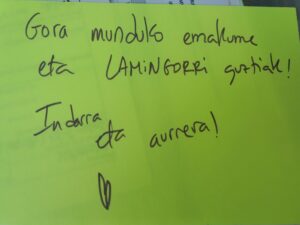 Gora munduko emakume
eta LAMiNGORRi guztiak!
Indarra
eta aurrera!